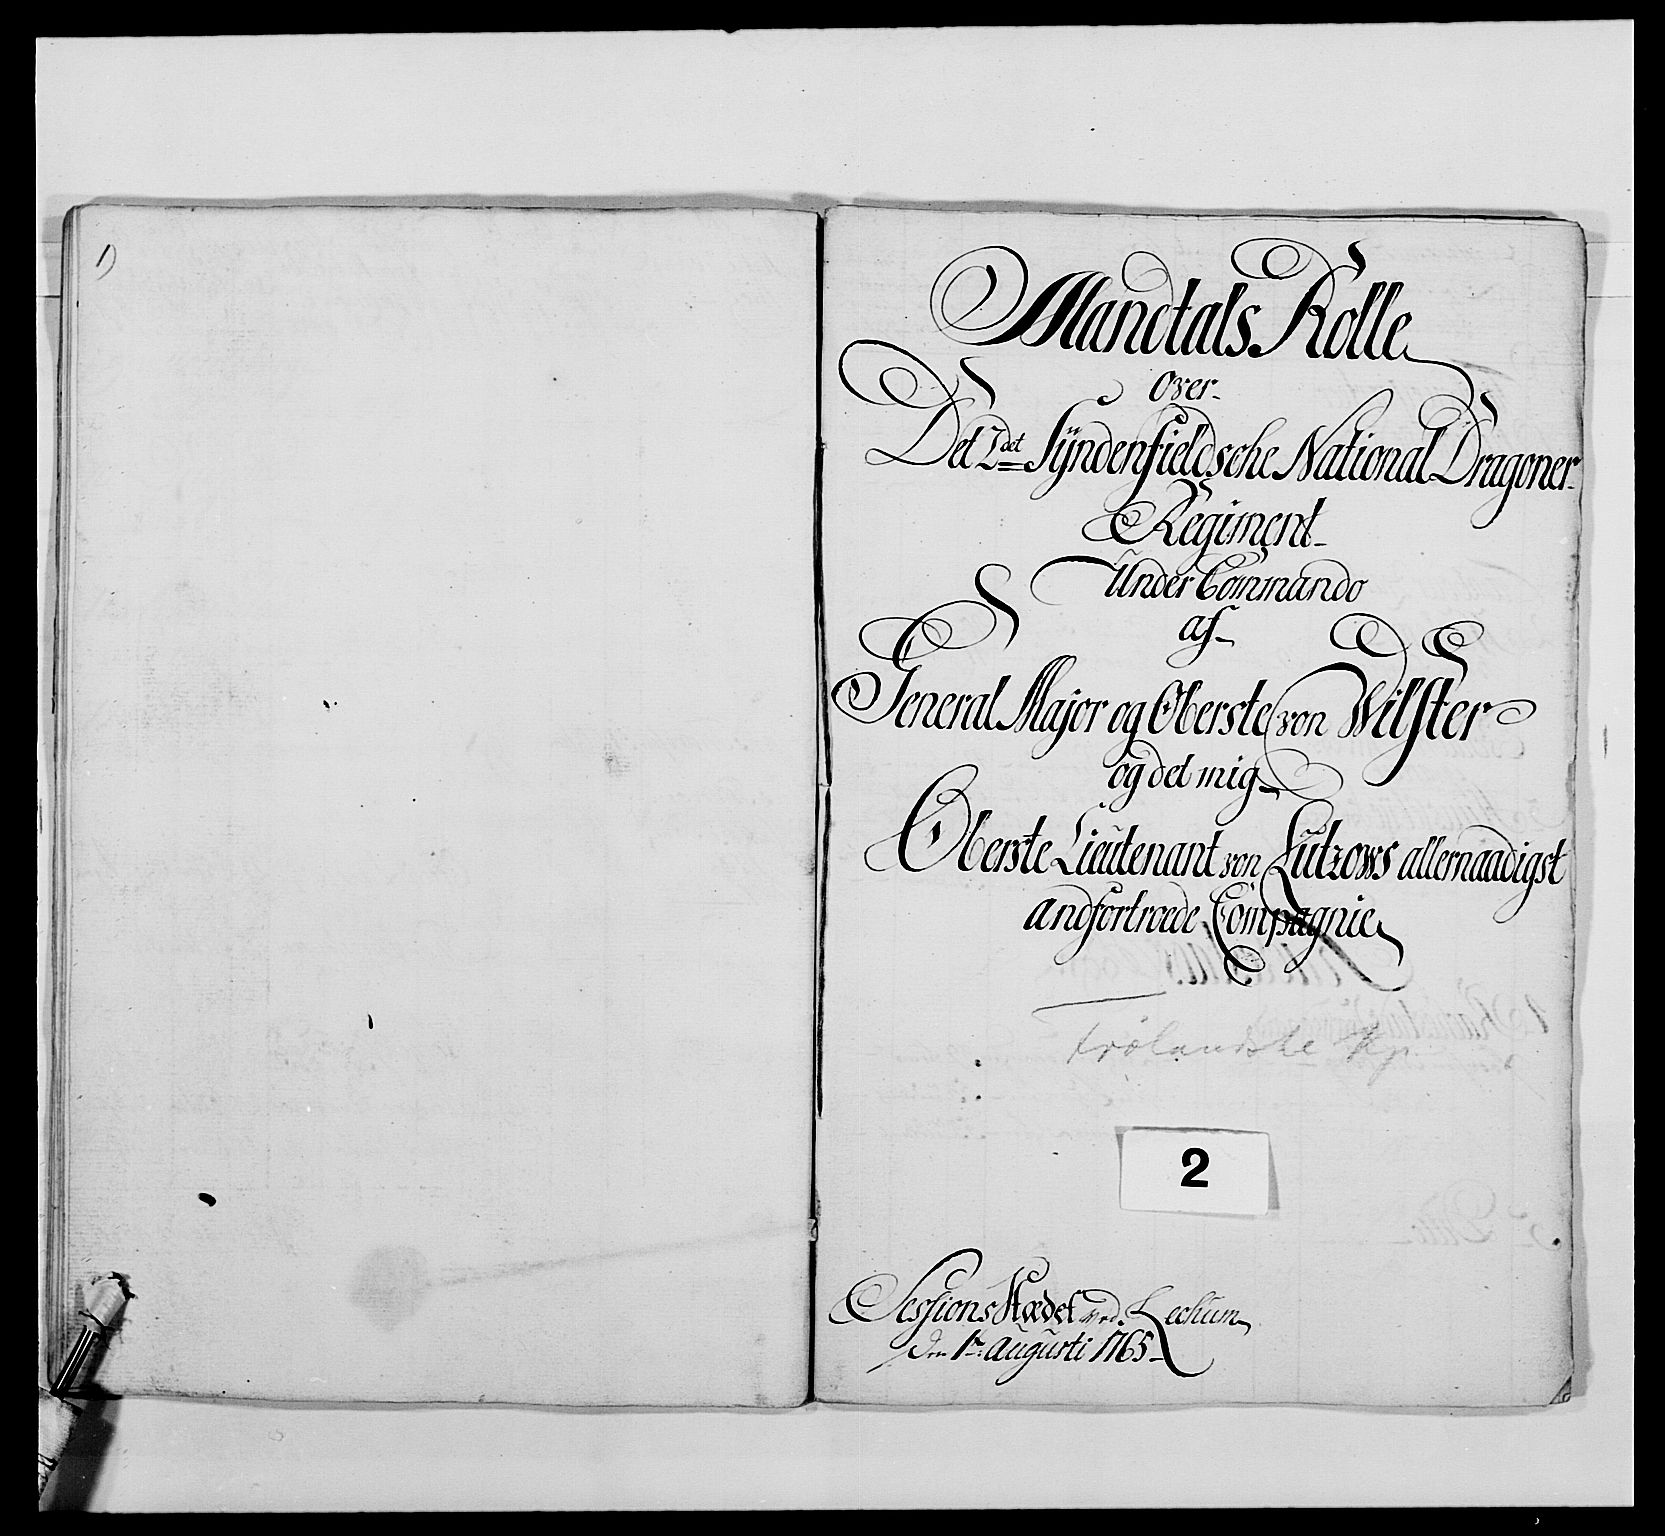 1)
Mandtals Rolle
over
Det 2det Syndenfieldsche National Dragoner
Regiment
Under Commando
af
General Major og Oberste von Wilster
og det mig
Oberste Lieutenant von Lützows allernaadigst
andfortroede Compagnie
trölandske Kp.
2
Sessions Stædet ved Lechum
den 1te Augusti 1765